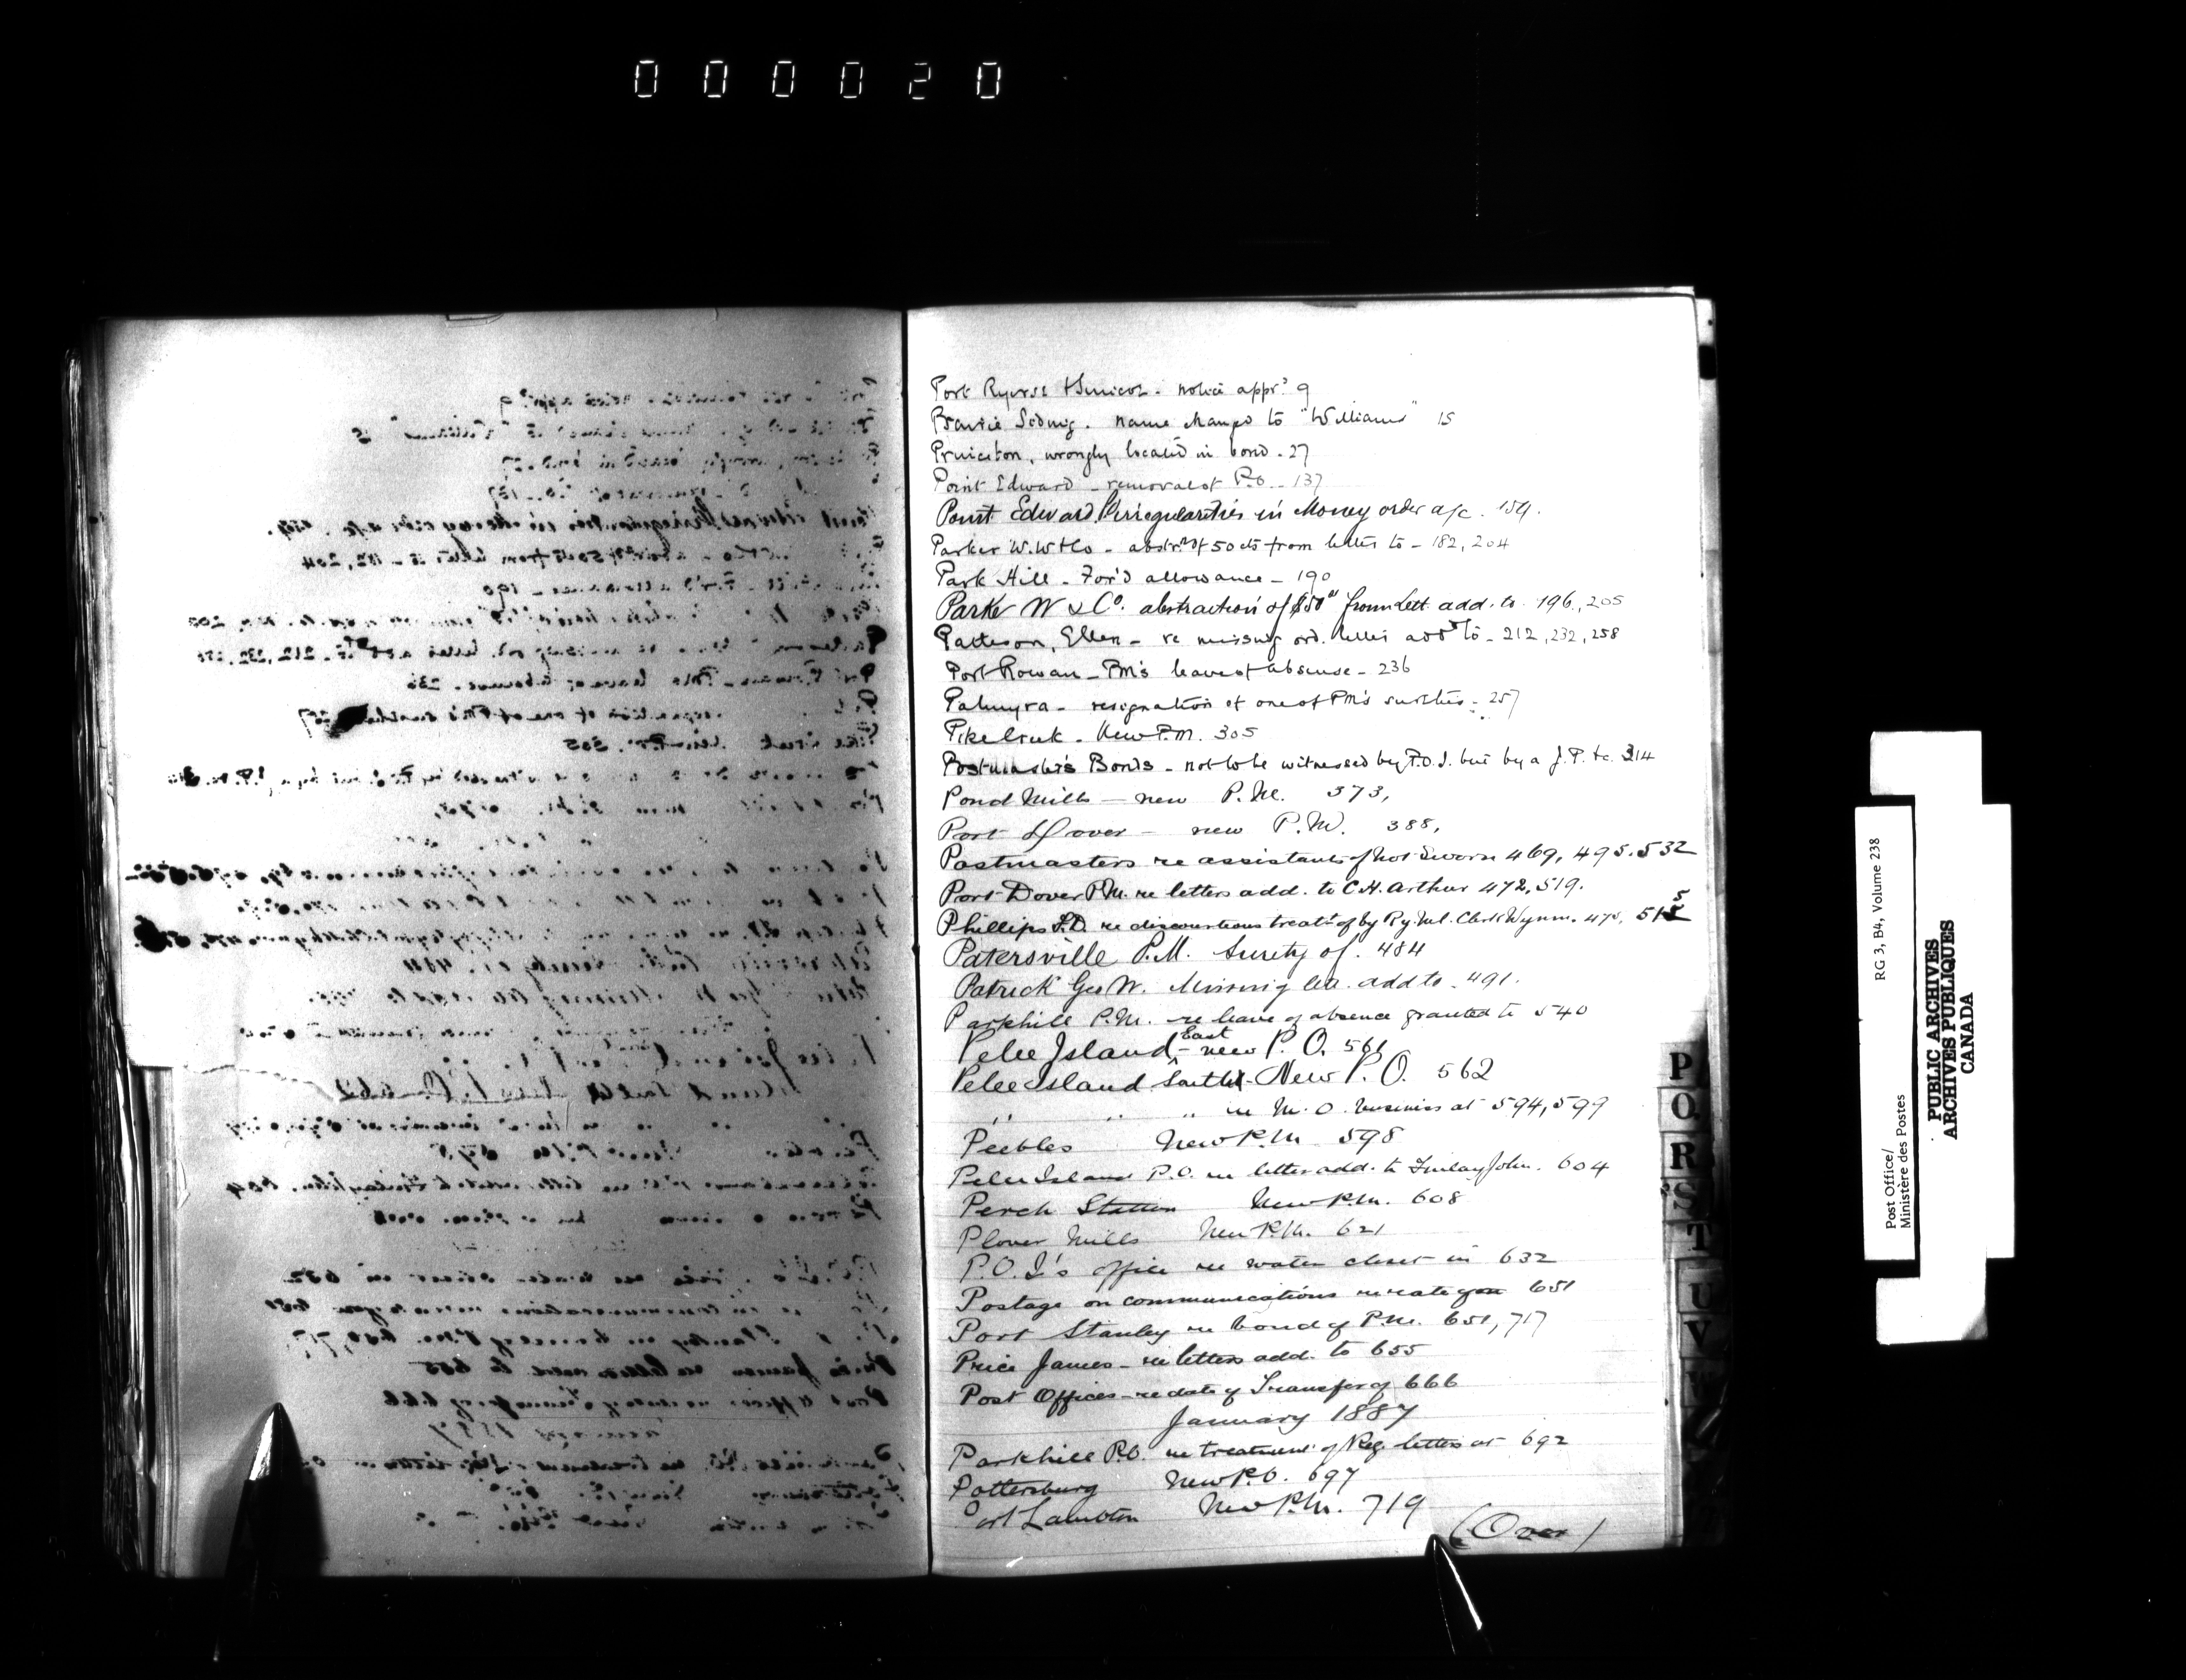 000020
Port Ryerse & Simcoe - notice appr? 9
Prairie Siding. name changed to "Williams" 15
Princeton, wrongly located in bond - 27
Point Edward - removal of P.O. - 137
Point Edward P. irregularities in Money order a/c. 159.
Parker W.W & Co - abstrn of 50 cts from letter to - 182, 204
Park Hill - For'd allowance - 190
Parke W & Co. abstraction of $50 from Lett. add. to 196, 205
Patteson, Ellen - re missing ord. letter add to - 212, 232, 258
Port Rowan - PM's leave of absense - 236
Palmyra - resignation of one of PM's sureties - 257
Pike Creek - New P.M. 305
Postmaster's Bonds - not to be witnessed by P.O.I. but by a J.P. &c. 314
Pond Mills - new P.M. 373,
Port Dover - new P.M. 388,
Postmasters re assistants of not sworn 469, 495, 532
Port Dover P.M. re letters add. to C.H. Arthur 472, 519.
Phillips re discourteous treatt of by Ry. Ml. Clerk Wynn. 475,
Patersville P.M. Surety of. 484
Patrick Geo W. Missing let. add to - 491.
Parkhill P.M. - re leave of absence granted to 540
Pelee Island East - new P.O. 561
Pelee Island South - New P.O. 562
" " " re M.O. business at 594, 599
Peebles New P.M 598
Pelee Island P.O. re letter add. to Finlay John. 604
Perch Station New P.M. 608
Plover Mills New P.M. 621
P.O.I's office re water closet in 632
Postage on communications re rate 651
Port Stanley re bond of P.M. 651, 717
Price James - re letters add. to 655
Post Offices - re date of Transfer of 666
January 1887
Parkhill P.O. re treatment of Reg. letters at 692
Pottersburg New P.O. 697
Port Lambton New P.M. 719
(Over)
P
Q
R
S
T
U
V
W
Post Office/
Ministère des Postes
RG 3, B4, Volume 238
PUBLIC ARCHIVES
ARCHIVES PUBLIQUES
CANADA